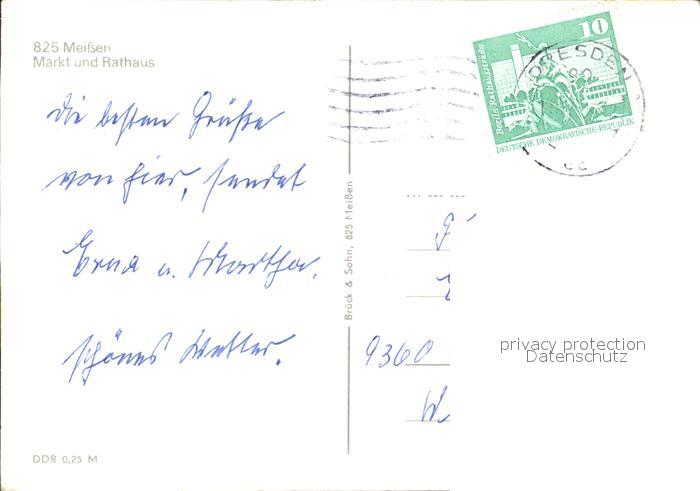 825 Meißen
Markt und Rathaus
Die besten Grüße
von hier, sendet
Erna u. Martha.
schönes Wetter.
DDR 0,25 M
Brück & Sohn, 825 Meißen
10
Berlin, Rathausstraße
DEUTSCHE DEMOKRATISCHE REPUBLIK
DRESDEN
9360
W
privacy protection
Datenschutz